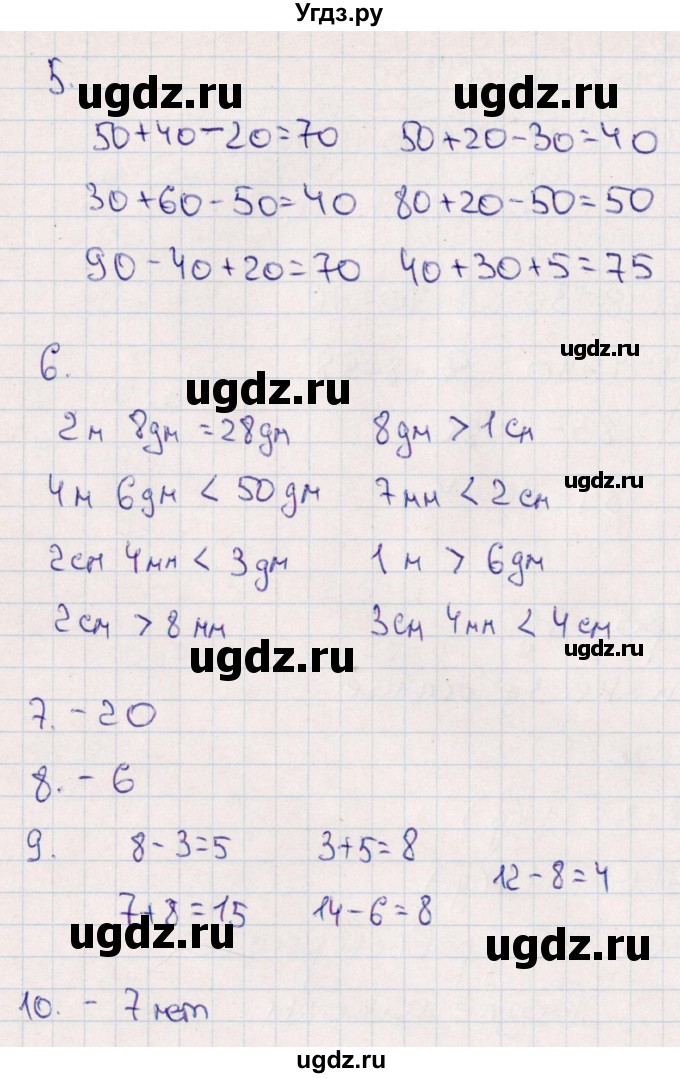 Угдз.ру
5.
ugdz.ru ugdz.ru
50+40-20=70 50+20-30=40
30+60-50=40 80+20-50=50
90-40+20=70 40+30+5=75
6.
ugdz.ru ugdz.ru
2м 8дм = 28дм 8дм > 1см
4м 6дм < 50дм 7мм < 2см
ugdz.ru
2см 4мм < 3дм 1м > 6дм
2см > 8мм 3см 4мм < 4см
ugdz.ru ugdz.ru
7. - 20
8. - 6
9. 8-3=5 3+5=8 12-8=4
7+8=15 14-6=8
ugdz.ru ugdz.ru
10. - 7 лет
ugdz.ru